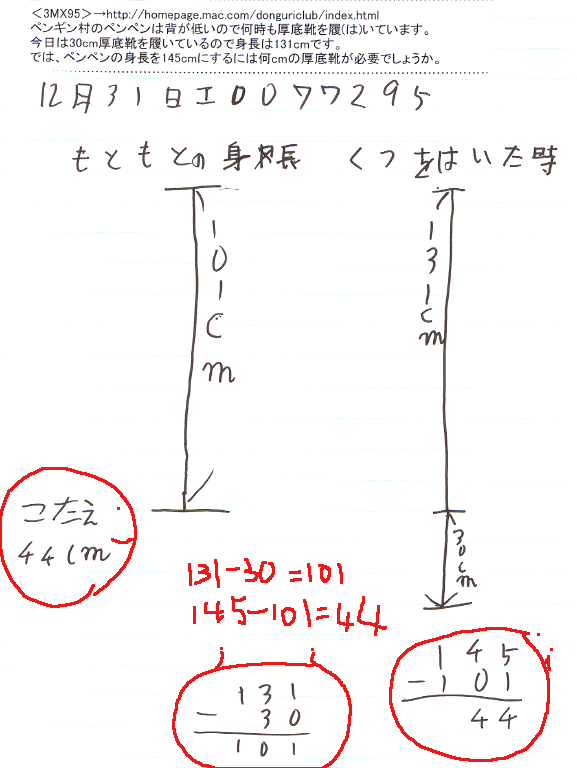 ＜3MX95＞→http://homepage.mac.com/donguriclub/index.html
ペンギン村のペンペンは背が低いので何時も厚底靴を履(は)いています。
今日は30cm厚底靴を履いているので身長は131cmです。
では、ペンペンの身長を145cmにするには何cmの厚底靴が必要でしょうか。
12月31日エ0077295
もともとの身長 くつをはいた時
101cm
131cm
30cm
こたえ
44cm
131-30=101
145-101=44
131
-30
101
145
-101
44